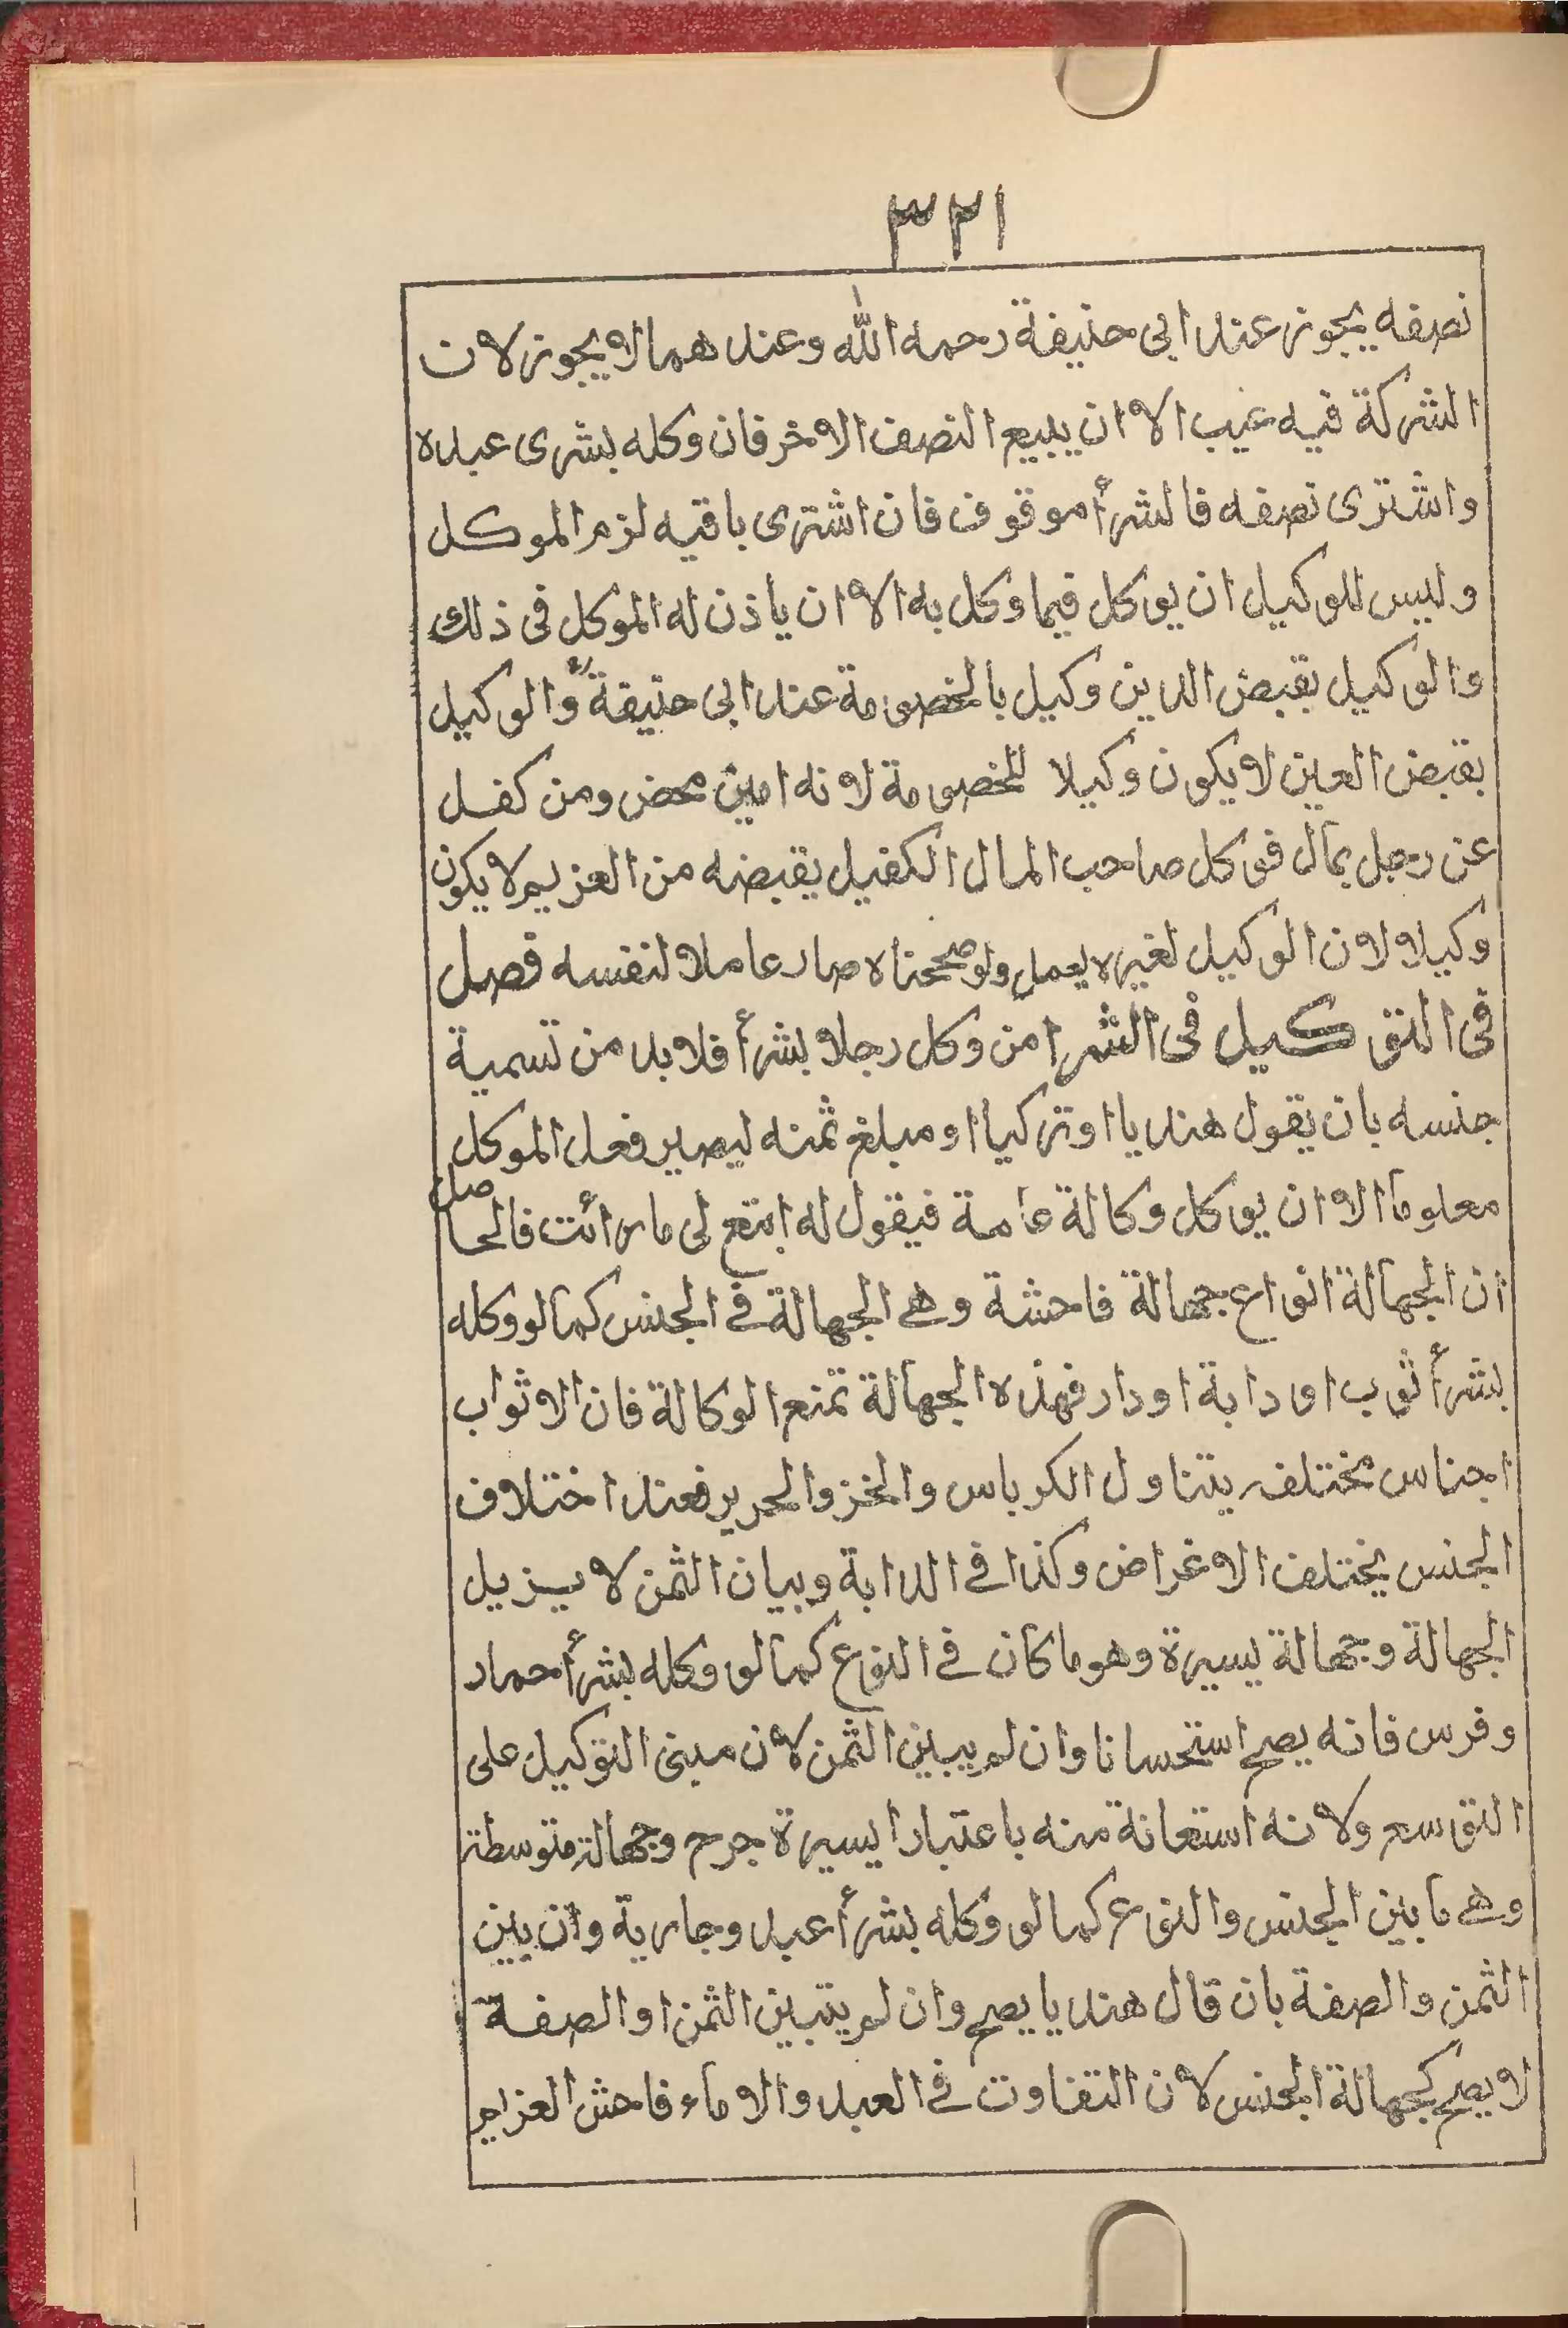 ٣٢١
نصفه يجوز عند ابى حنيفة رحمه الله وعندهما لا يجوز لان
الشركة فيه عيب الا ان يبيع النصف الاخر فان وكله بشرى عبده
واشترى نصفه فالشرأ موقوف فان اشترى باقيه لزم الموكل
وليس للوكيل ان يوكل فيما وكل به الا ان ياذن له الموكل فى ذلك
والوكيل بقبض الدين وكيل بالخصومة عند ابى حنيفة والوكيل
بقبض العين لا يكون وكيلا للخصومة لانه امين محض ومن كفل
عن رجل بمال فوكل صاحب المال الكفيل يقبضه من الغريم لا يكون
وكيلا لان الوكيل لغيره يعمل ولو صححناه صار عاملا لنفسه فصل
فى التوكيل فى الشرا من وكل رجلا بشرأ فلابد من تسمية
جنسه بان يقول هنديا او تركيا او مبلغ ثمنه ليصير فعل الموكل
معلوما الا ان يوكل وكالة عامة فيقول له ابتع لى ما رأئت فالحاصل
ان الجهالة انواع جهالة فاحشة وهى الجهالة فى الجنس كما لو وكله
بشرأ ثوب او دابة او دار فهذه الجهالة تمنع الوكالة فان الاثواب
اجناس مختلف يتناول الكرباس والخز والحرير فعند اختلاف
الجنس يختلف الاغراض وكذا فى الدابة وبيان الثمن لا يزيل
الجهالة وجهالة يسيرة وهو ما كان فى النوع كما لو وكله بشرأ حمار
وفرس فانه يصح استحسانا وان لم يبين الثمن لان مبنى التوكيل على
التوسع ولانه استعانة منه باعتبارا يسيرة جرح وجهالة متوسطة
وهى ما بين الجنس والنوع كما لو وكله بشرأ عبد وجارية وان بين
الثمن والصفة بان قال هنديا يصح وان لم يتبين الثمن او الصفة
لا يصح كجهالة الجنس لان التفاوت فى العبد والاماء فاحش العزام